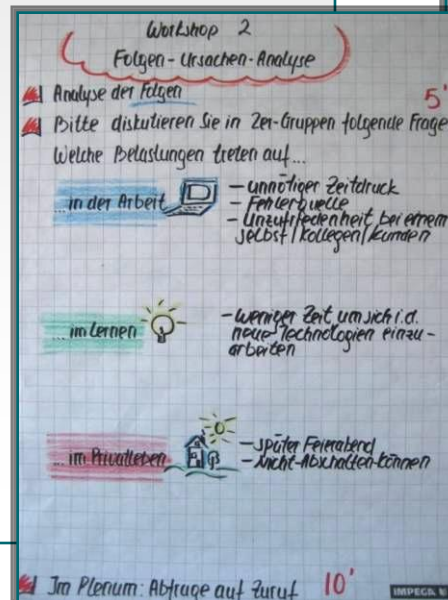 Workshop 2
Folgen-Ursachen-Analyse
Analyse der Folgen 5'
Bitte diskutieren Sie in 2er-Gruppen folgende Frage
Welche Belastungen treten auf...
...in der Arbeit
- unnötiger Zeitdruck
- Fehlerquelle
- Unzufriedenheit bei einem
selbst/Kollegen/Kunden
...im Lernen
- weniger Zeit um sich i.d.
neue Technologien einzu-
arbeiten
...im Privatleben
- später Feierabend
- Nicht-Abschalten-können
Im Plenum: Abfrage auf Zuruf 10'